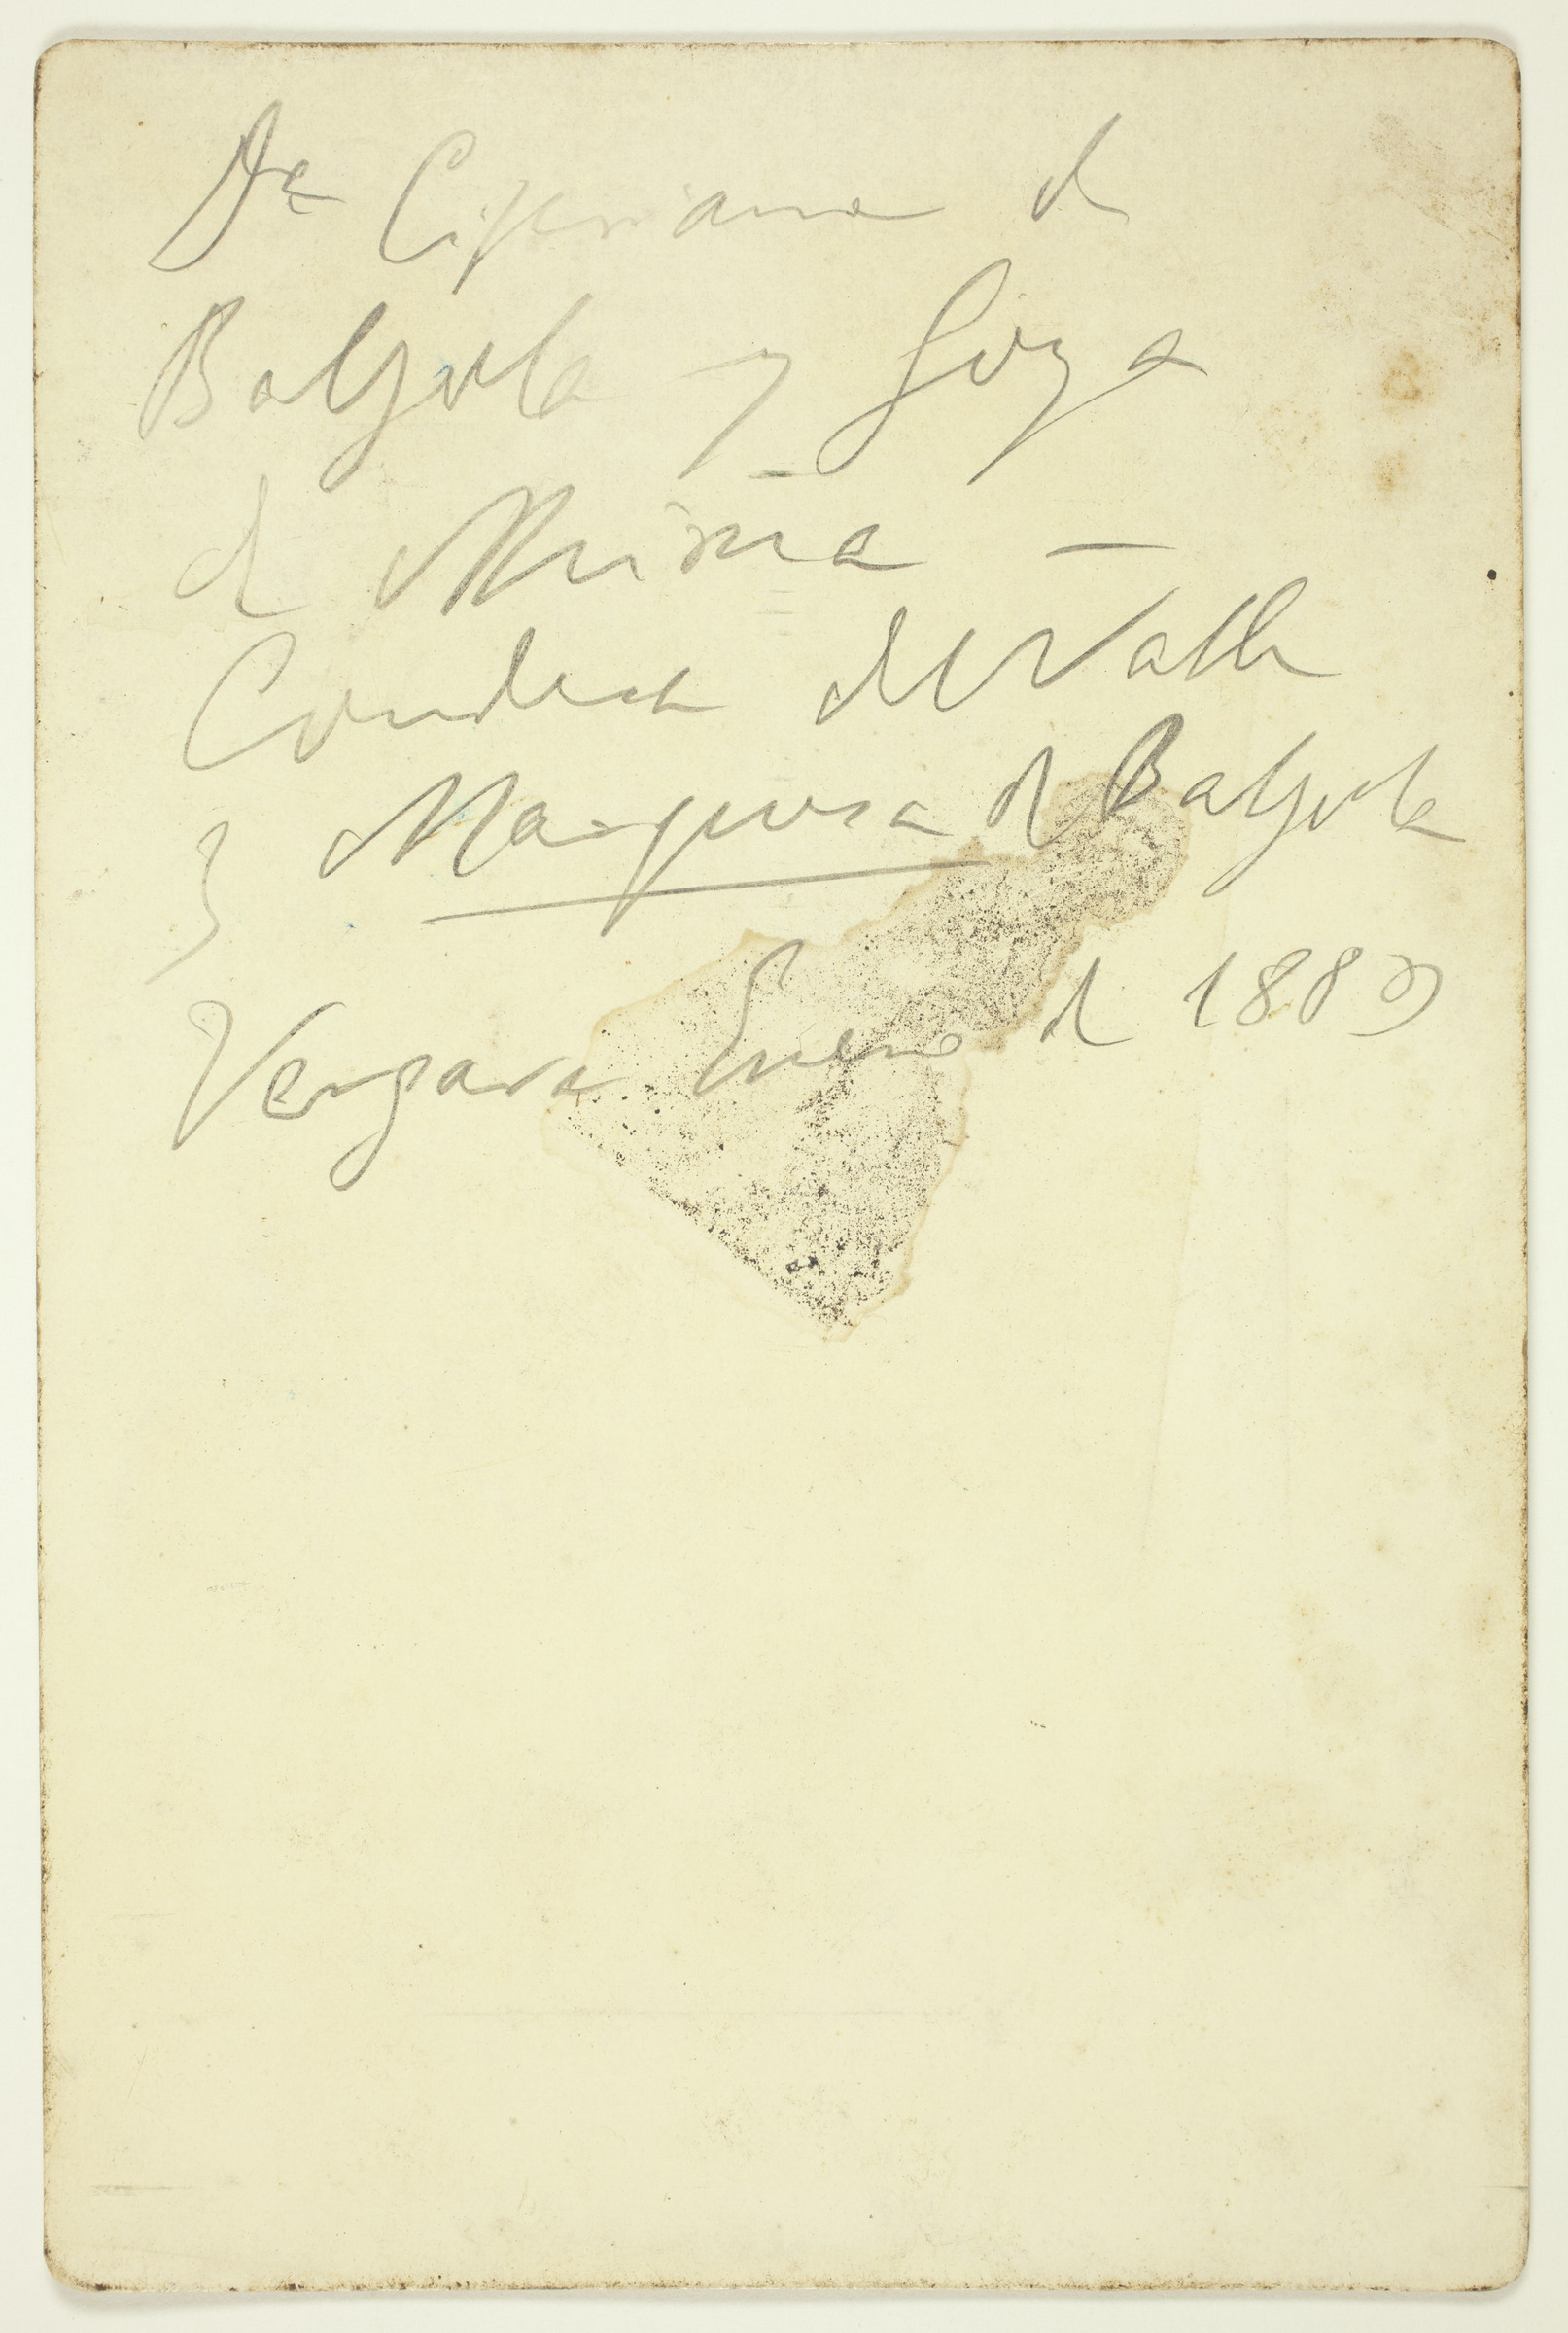 Da Cipriana de
Balzola y Goya
de Murua —
Condesa del Valle
y Marquesa de Balzola
Vergara Enero de 1889